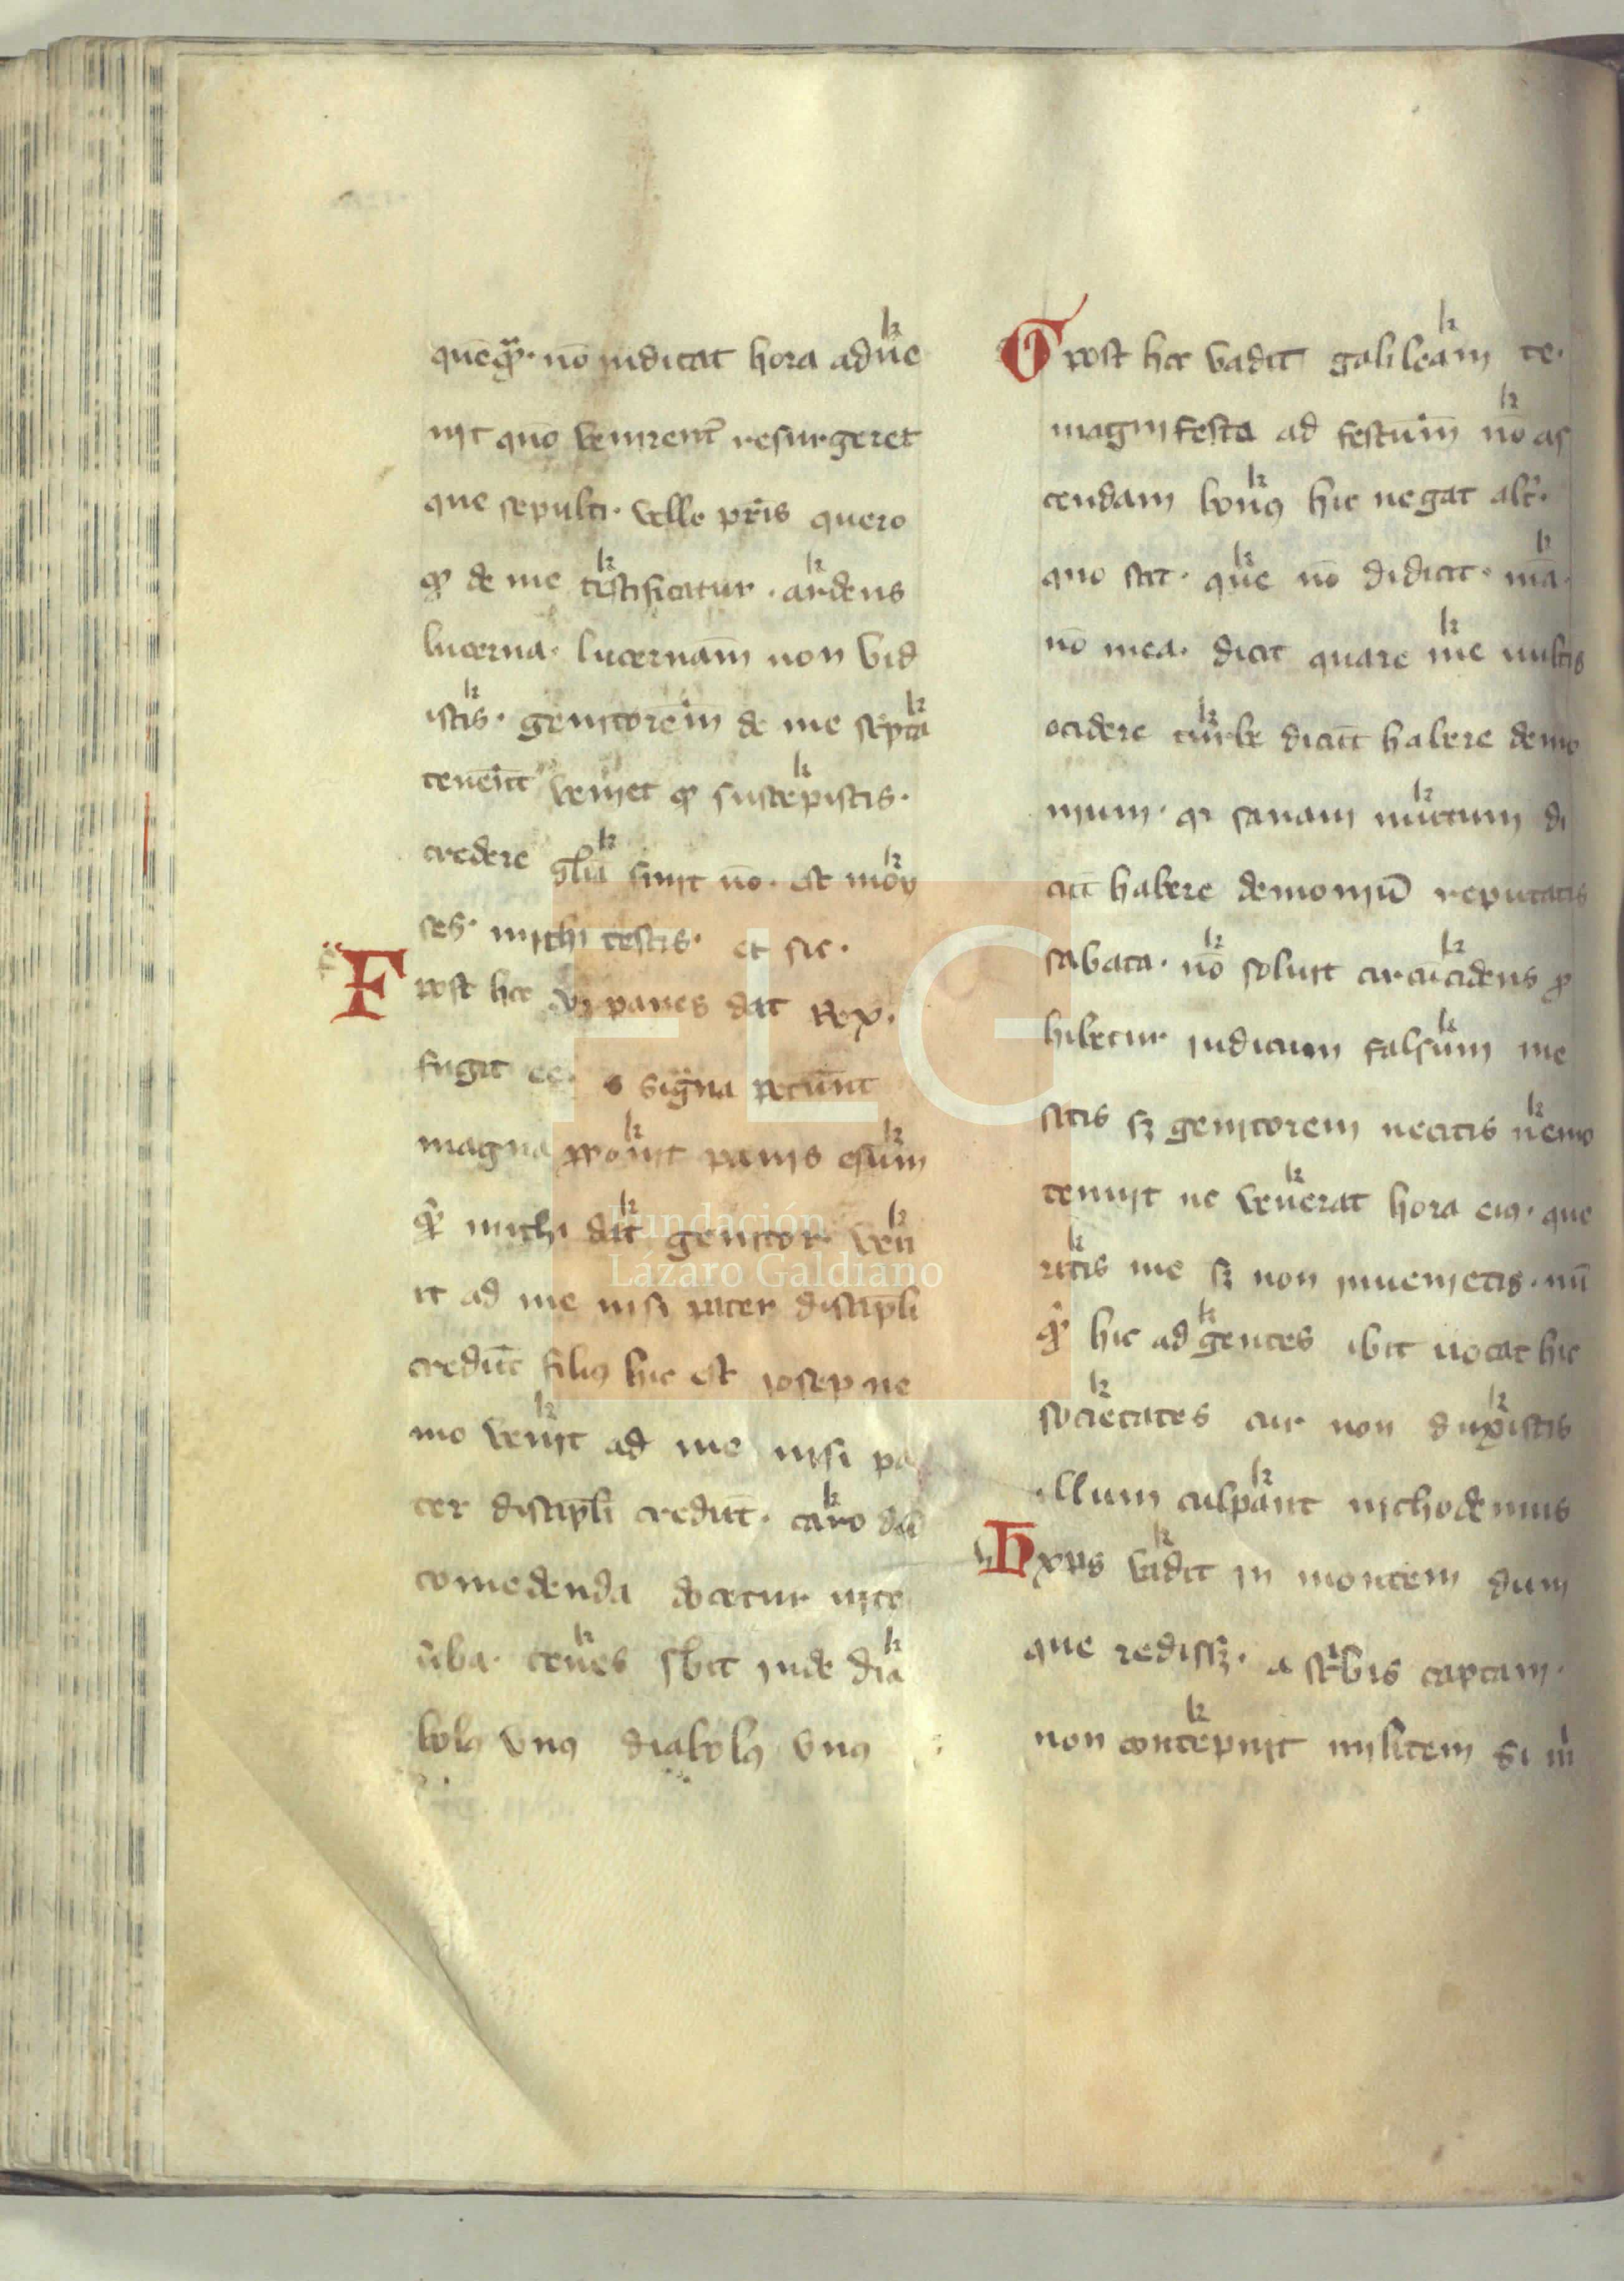 quēq̃ꝫ· nō iudicat hora aduē
nit quo venirent resurgeret
que sepulti· velle pr̄is quero
qͥ de me testificatur· ardens
lucerna· lucernam̄ non vid
istis· genitorem de me septa
veniet qͥ suscepistis·
credere gl̄ia sinit nō· est moy
ses· michi testis· et sic·
F post hec vꝫ panes dat Rex·
fugit signa petūnt
magna panis esum
michi dat genitor ven
it ad me nisi pater discipl̄i
credūt filiꝰ hic est iosep ne
mo venit ad me nisi pa
ter discipl̄i credūt· caro
comedenda docetur
v̄ba· tenes inde dia
bolꝰ vnꝰ diabolꝰ vnꝰ
G post hec vadit galileam te·
magnifesta ad festum̄ nō as
cendam bonꝰ hic negat alt̄·
quo scit· que nō didicit· mea
nō mea· dicit quare me vultis
ocidere turbe dicūt habere demo
nium· qi sanam mutum di
cūt habere demoniū reputatis
sabata· nō soluit circūcidens ꝓ
hibetur iudicium falsum me
scitis sꝫ genitorem necitis nemo
tenuit ne venerat hora eiꝰ· que
ritis me sꝫ non inuenietis· nū
hic ad gentes ibit uocat hic
societates cur non duxistis
illum culpant nichodemus
H xp̄s vadit in montem dum
que redissꝫ· a sc̄bis captam·
non militem si
Fundación
Lázaro Galdiano
FLG